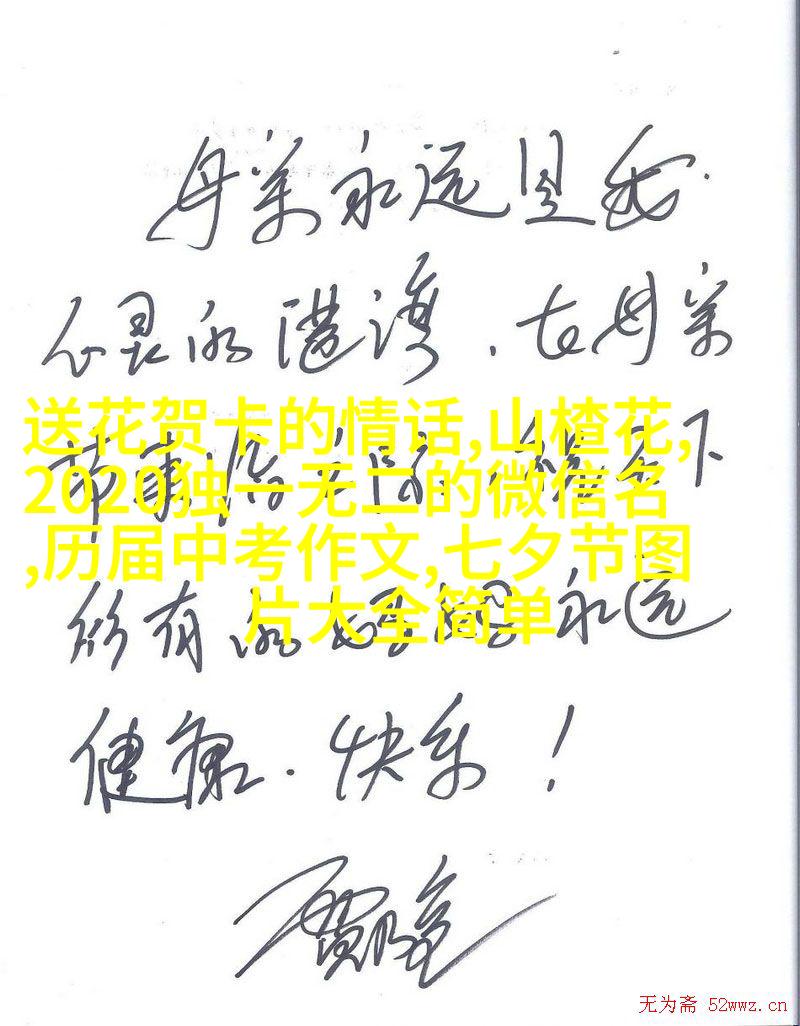 母亲永远是我
心灵的港湾,在母亲
节来临之际,祝天下
所有的妈妈永远
健康、快乐!
送花贺卡的情话,山楂花,
2020独一无二的微信名
,历届中考作文,七夕节图
片大全简单
无为斋 52wwz.cn